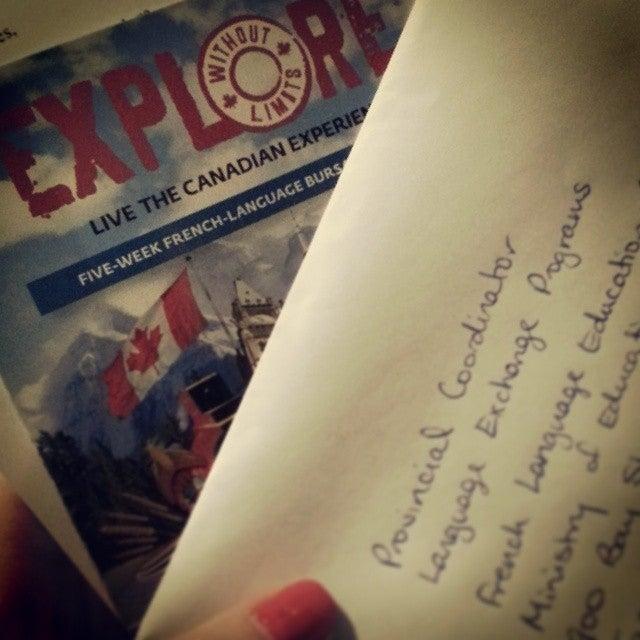 es.
EXPLORE
WITHOUT LIMITS
LIVE THE CANADIAN
FIVE-WEEK FRENCH-LANGUAGE
Provincial Coordinator
Language Exchange Programs
French Language Education
Ministry of
900 Bay